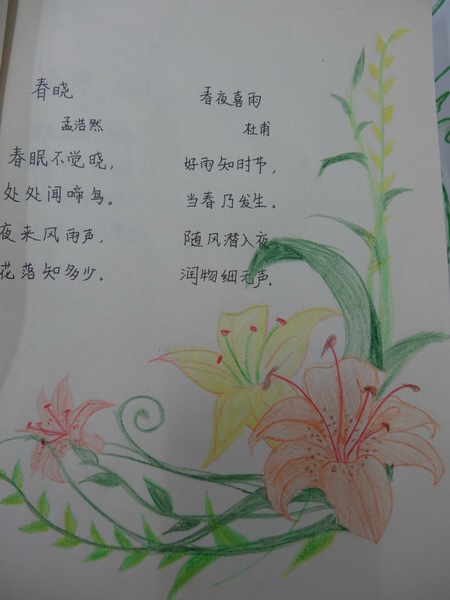 春晓
孟浩然
春眠不觉晓，
处处闻啼鸟。
夜来风雨声，
花落知多少。
春夜喜雨
杜甫
好雨知时节，
当春乃发生。
随风潜入夜
润物细无声.